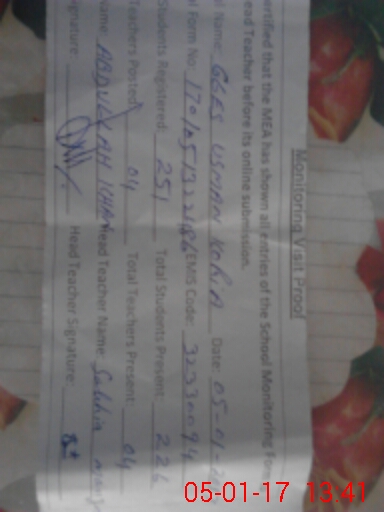 Monitoring Visit Proof
ertified that the MEA has shown all entries of the School Monitoring Form
ead Teacher before its online submission.
l Name: GGES USMAN KORIA Date: 05-01-
l Form No: EMIS Code:
Students Registered: 251 Total Students Present: 226
Teachers Posted: 04 Total Teachers Present: 04
ame: ABDULLAH KHAN Head Teacher Name:
ignature: Head Teacher Signature:
05-01-17 13.41